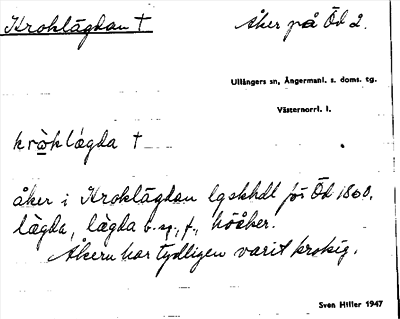 Kroklägdan † Åker på Öd 2.
Ullångers sn, Ångermanl. s. doms. tg.
Västernorrl. l.
kròklàgda †
åker i Kroklägdan lgskhdl för Öd 1860.
lägda, làgda b. sg., f., höåker.
Åkern har tydligen varit krokig.
Sven Hiller 1947